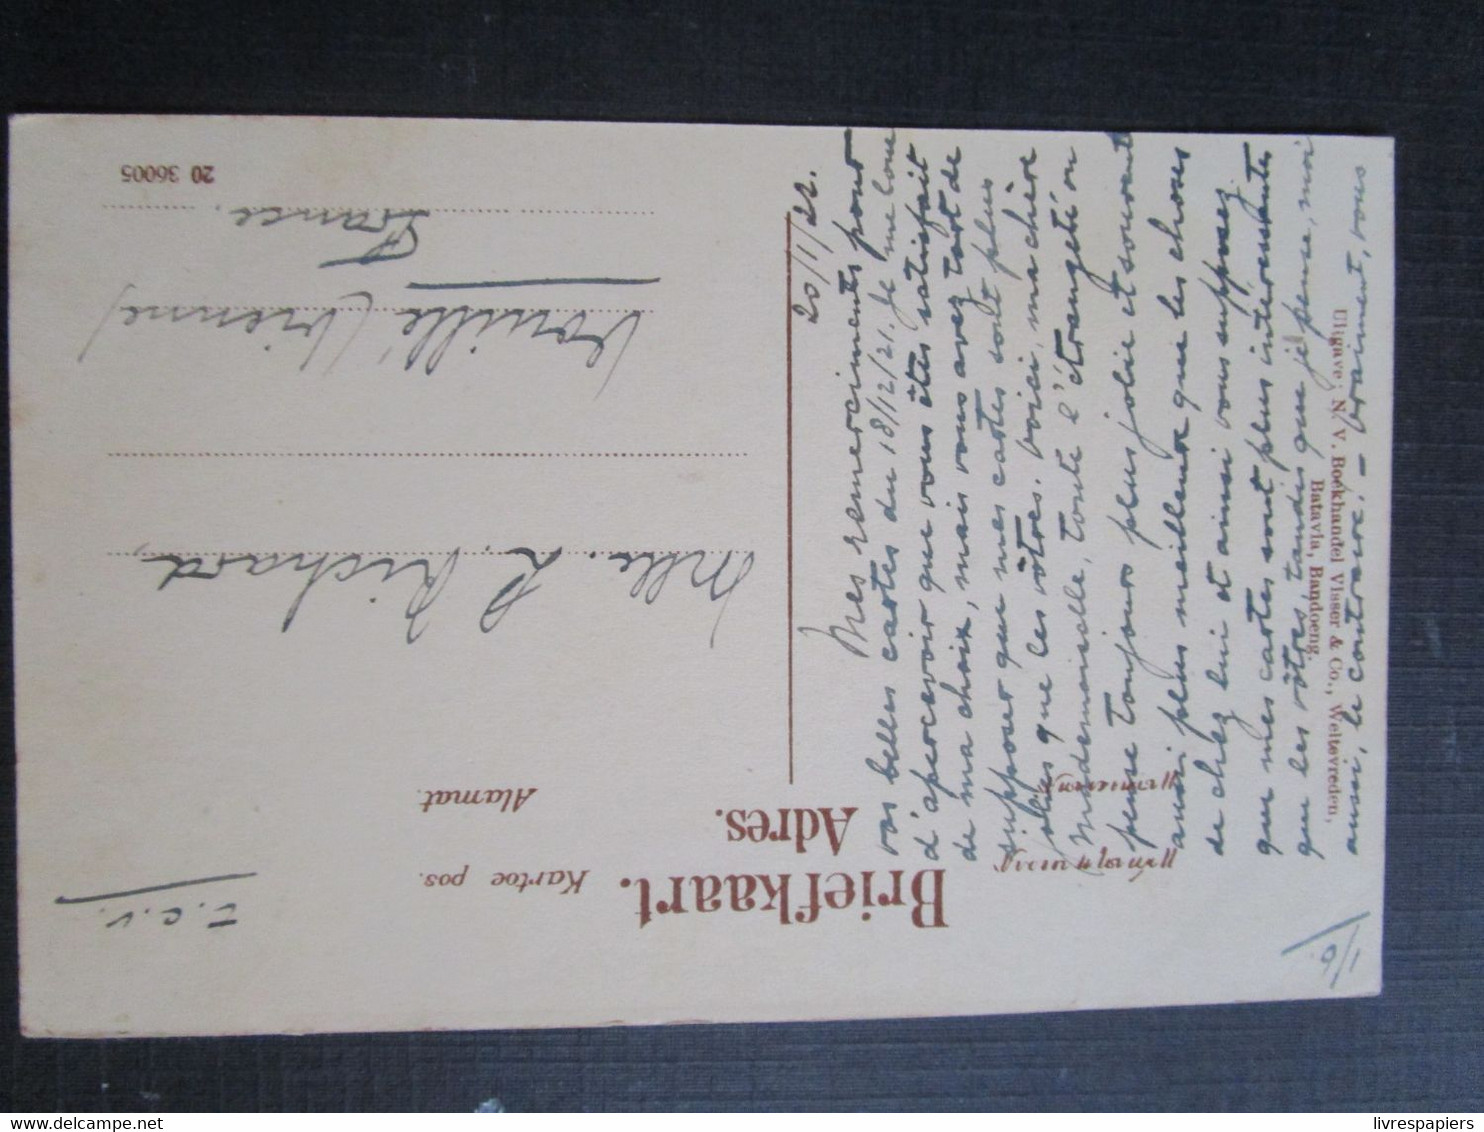 Briefkaart. Kartoe pos.
Adres. Alamat.
T.C.V.
1/6.
Mlle. R. Richard,
Vouillé (Vienne)
France.
20 36005
Uitgave: N. V. Boekhandel Visser & Co., Weltevreden,
Batavia, Bandoeng.
20/1/22.
Mes remerciments pour
vos belles cartes du 18/12/21. Je me loue
d'apercevoir que vous êtes satisfait
de ma choix, mais vous avez tort de
suppour que mes cartes sont plus
jolies que les vôtres. Voici, ma chère
Mademoiselle, toute l'étrangeté on
pense toujours plus jolie et souvent
aussi plus meilleure que les choses
de chez lui et ainsi vous supposez
que mes cartes sont plus intéressantes
que les vôtres, tandis que je pense, moi
aussi, le contraire. — Vraiment, vous
livrespapiers
delcampe.net